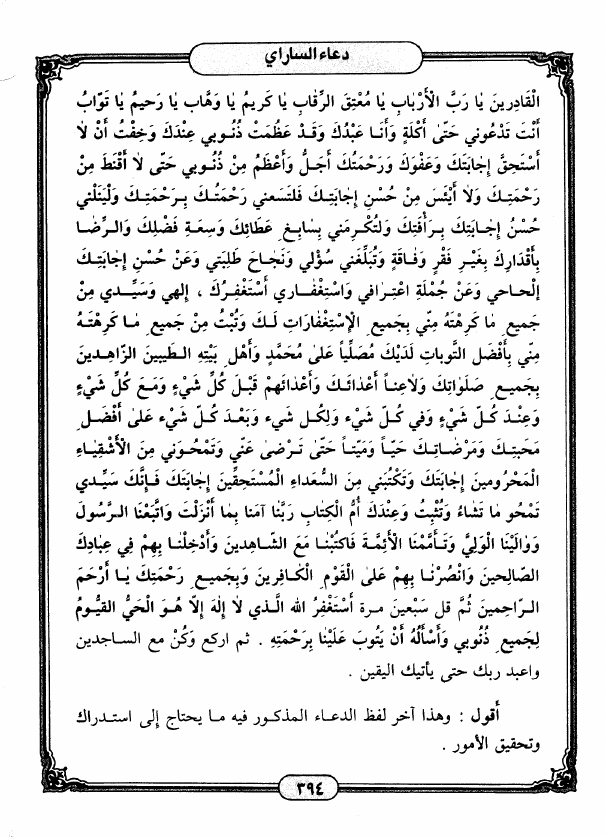 دعاء الساراي
الْقَادِرِينَ يَا رَبَّ الْأَرْبَابِ يَا مُعْتِقَ الرِّقَابِ يَا كَرِيمُ يَا وَهَّاب يَا رَحيمُ يَا تَوّابُ
أَنْتَ تَدْعُوني حَتّىٰ أَكِلَةٍ وَأَنَا عَبْدُكَ وَقَدْ عَظُمَتْ ذُنُوبي عِنْدَكَ وَخِفْتُ أَنْ لَا
أَسْتَحِقَّ إجَابَتَكَ وَعَفْوَكَ وَرَحْمَتُكَ أَجَلُّ وَأَعْظَمُ مِنْ ذُنُوبي حَتّىٰ لَا أَقْنَطَ مِنْ
رَحْمَتِكَ وَلَا أَيْئَسَ مِنْ حُسْنِ إجَابَتِكَ فَلْتَسَعني رَحْمَتُكَ بِرَحْمَتِكَ وَلْيَنَلْني
حُسْنُ إجَابَتِكَ بِرَأْفَتِكَ وَلْتُكْرِمَني بِسَابِغِ عَطَائِكَ وَسِعَةِ فَضْلِكَ وَالرِّضَا
بِأَقْدَارِكَ بِغَيْرِ فَقْرٍ وَفَاقَةٍ وَتُبَلِّغَني سُؤْلي وَنَجَاحَ طَلِبَتي وَعَنْ حُسْنِ إجَابَتِكَ
إلْحَاحي وَعَنْ جُمْلَةِ اعْتِرَافي وَاسْتِغْفَاري أَسْتَغْفِرُكَ ، إلٰهي وَسَيِّدي مِنْ
جَميعِ مَا كَرِهْتَهُ مِنّي بِجَميعِ الْإسْتِغْفَارَاتِ لَكَ وَتُبْتُ مِنْ جَميعِ مَا كَرِهْتَهُ
مِنّي بِأَفْضَلِ التَّوبَاتِ لَدَيْكَ مُصَلِّياً عَلىٰ مُحَمَّدٍ وَأَهْلِ بَيْتِهِ الطَيبينَ الزَّاهِدينَ
بِجَميعِ صَلَوَاتِكَ وَلَاعِناً أَعْدَائَكَ وَأَعْدَائَهمْ قَبْلَ كُلِّ شَيْءٍ وَمَعَ كُلِّ شَيْءٍ
وَعِنْدَ كُلِّ شَيْءٍ وَفي كُلِّ شَيْءٍ وَلِكُلِ شَيء وَبَعْدَ كُلِّ شَيْءٍ عَلىٰ أَفْضَلِ
مَحَبتِكَ وَمَرْضَاتِكَ حَيّاً وَمَيّتاً حَتّىٰ تَرْضىٰ عَنّي وَتَمْحُوَني مِنَ الْأَشْقِيَاءِ
الْمَحْرُومينَ إجَابَتَكَ وَتَكْتُبَني مِنَ السُّعَدَاءِ الْمُسْتَحِقّينَ إجَابَتَكَ فَإنَّكَ سَيِّدي
تَمْحُو مَا تَشَاءُ وَتُثْبِتُ وَعِنْدَكَ أُمُّ الْكِتَابِ رَبَّنَا آمَنا بِمَا أَنْزَلْتَ وَاتَّبَعْنَا الرَّسُولَ
وَوَالَيْنَا الْوَلِيَّ وَتَأَمَّمْنَا الْأَئِمَّةَ فَاكتُبْنَا مَعَ الشَّاهِدينَ وَأَدْخِلْنَا بِهِمْ فِي عِبَادِكَ
الصَّالِحينَ وَانْصُرْنَا بِهِمْ عَلَى الْقَوْمِ الْكَافِرينَ وَبِجَميعِ رَحْمَتِكَ يَا أَرْحَمَ
الرَّاحِمينَ ثُمَّ قل سَبْعينَ مرة أَسْتَغْفِرُ الله الَّذي لَا إلٰهَ إلّا هُوَ الْحَيُّ القَيُّومُ
لِجَميعِ ذُنُوبي وَأَسْأَلُهُ أَنْ يَتُوبَ عَلَيْنَا بِرَحْمَتِهِ . ثم اركع وَكُنْ مع الساجدين
واعبد ربك حتى يأتيك اليقين .
أقول : وهذا آخر لفظ الدعاء المذكور فيه ما يحتاج إلى استدراك
وتحقيق الأمور .
٣٩٤